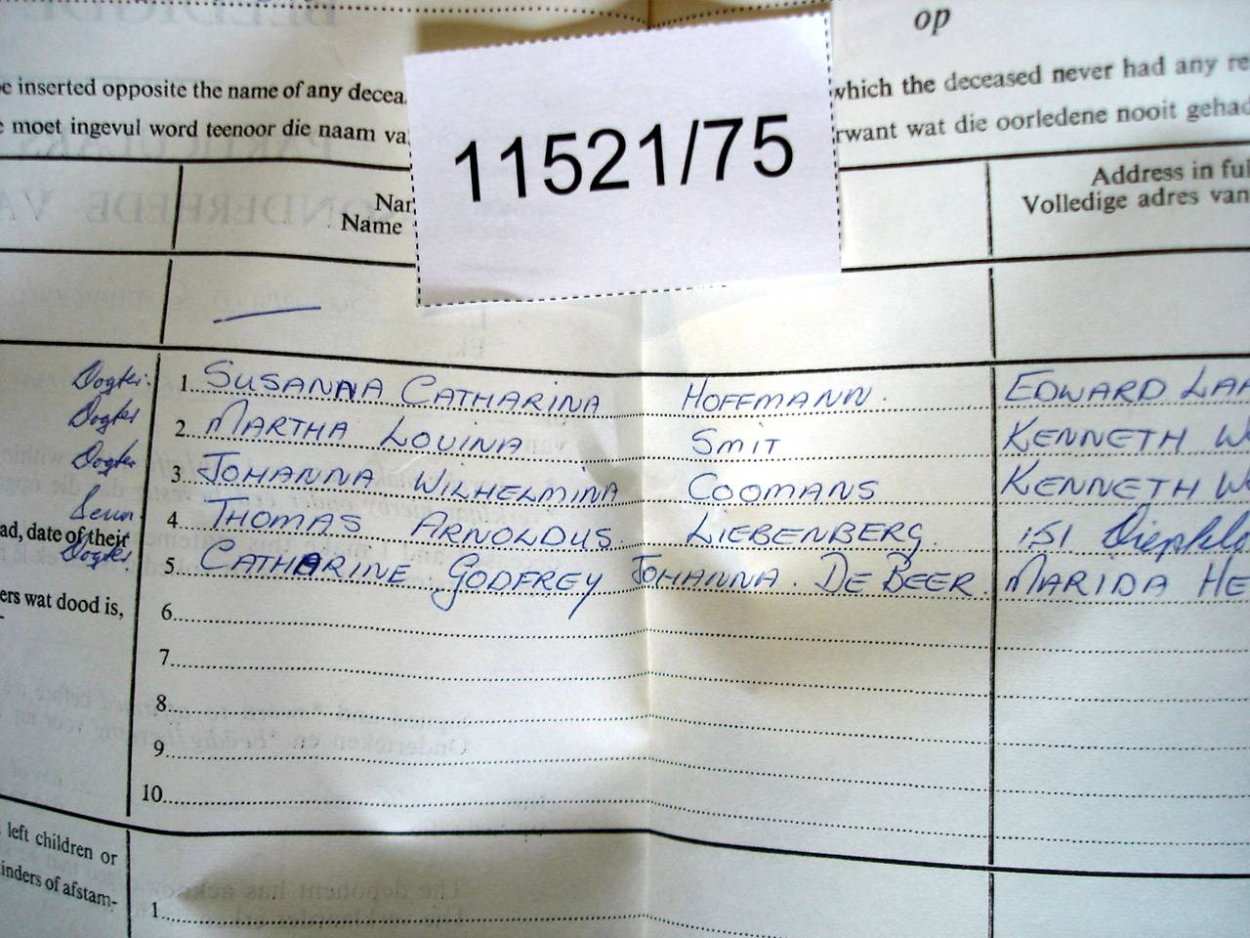 op
e inserted opposite the name of any decea
which the deceased never had any re
e moet ingevul word teenoor die naam va
rwant wat die oorledene nooit gehad
11521/75
Nar
Name
Address in ful
Volledige adres van
Dogter. 1. SUSANNA CATHARINA HOFFMANN. EDWARD LAA
Dogter 2. MARTHA LOUINA SMIT KENNETH W
Dogter 3. JOHANNA WILHELMINA COOMANS KENNETH W
Seun 4. THOMAS ARNOLDUS. LIEBENBERG. 151 Diepklo
ad, date of their
Dogter. 5. CATHARINE GODFREY JOHANNA. DE BEER. MARIDA HE
ers wat dood is,
6.
7.
8.
9.
10.
left children or
inders of afstam-
1.